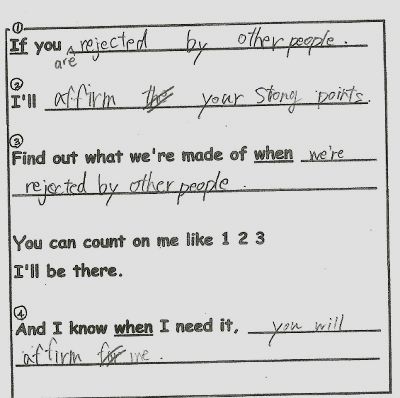 ①
If you are rejected by other people.
②
I'll affirm the your Stong points.
③
Find out what we're made of when we're
rejected by other people.
You can count on me like 1 2 3
I'll be there.
④
And I know when I need it, you will
affirm for me.